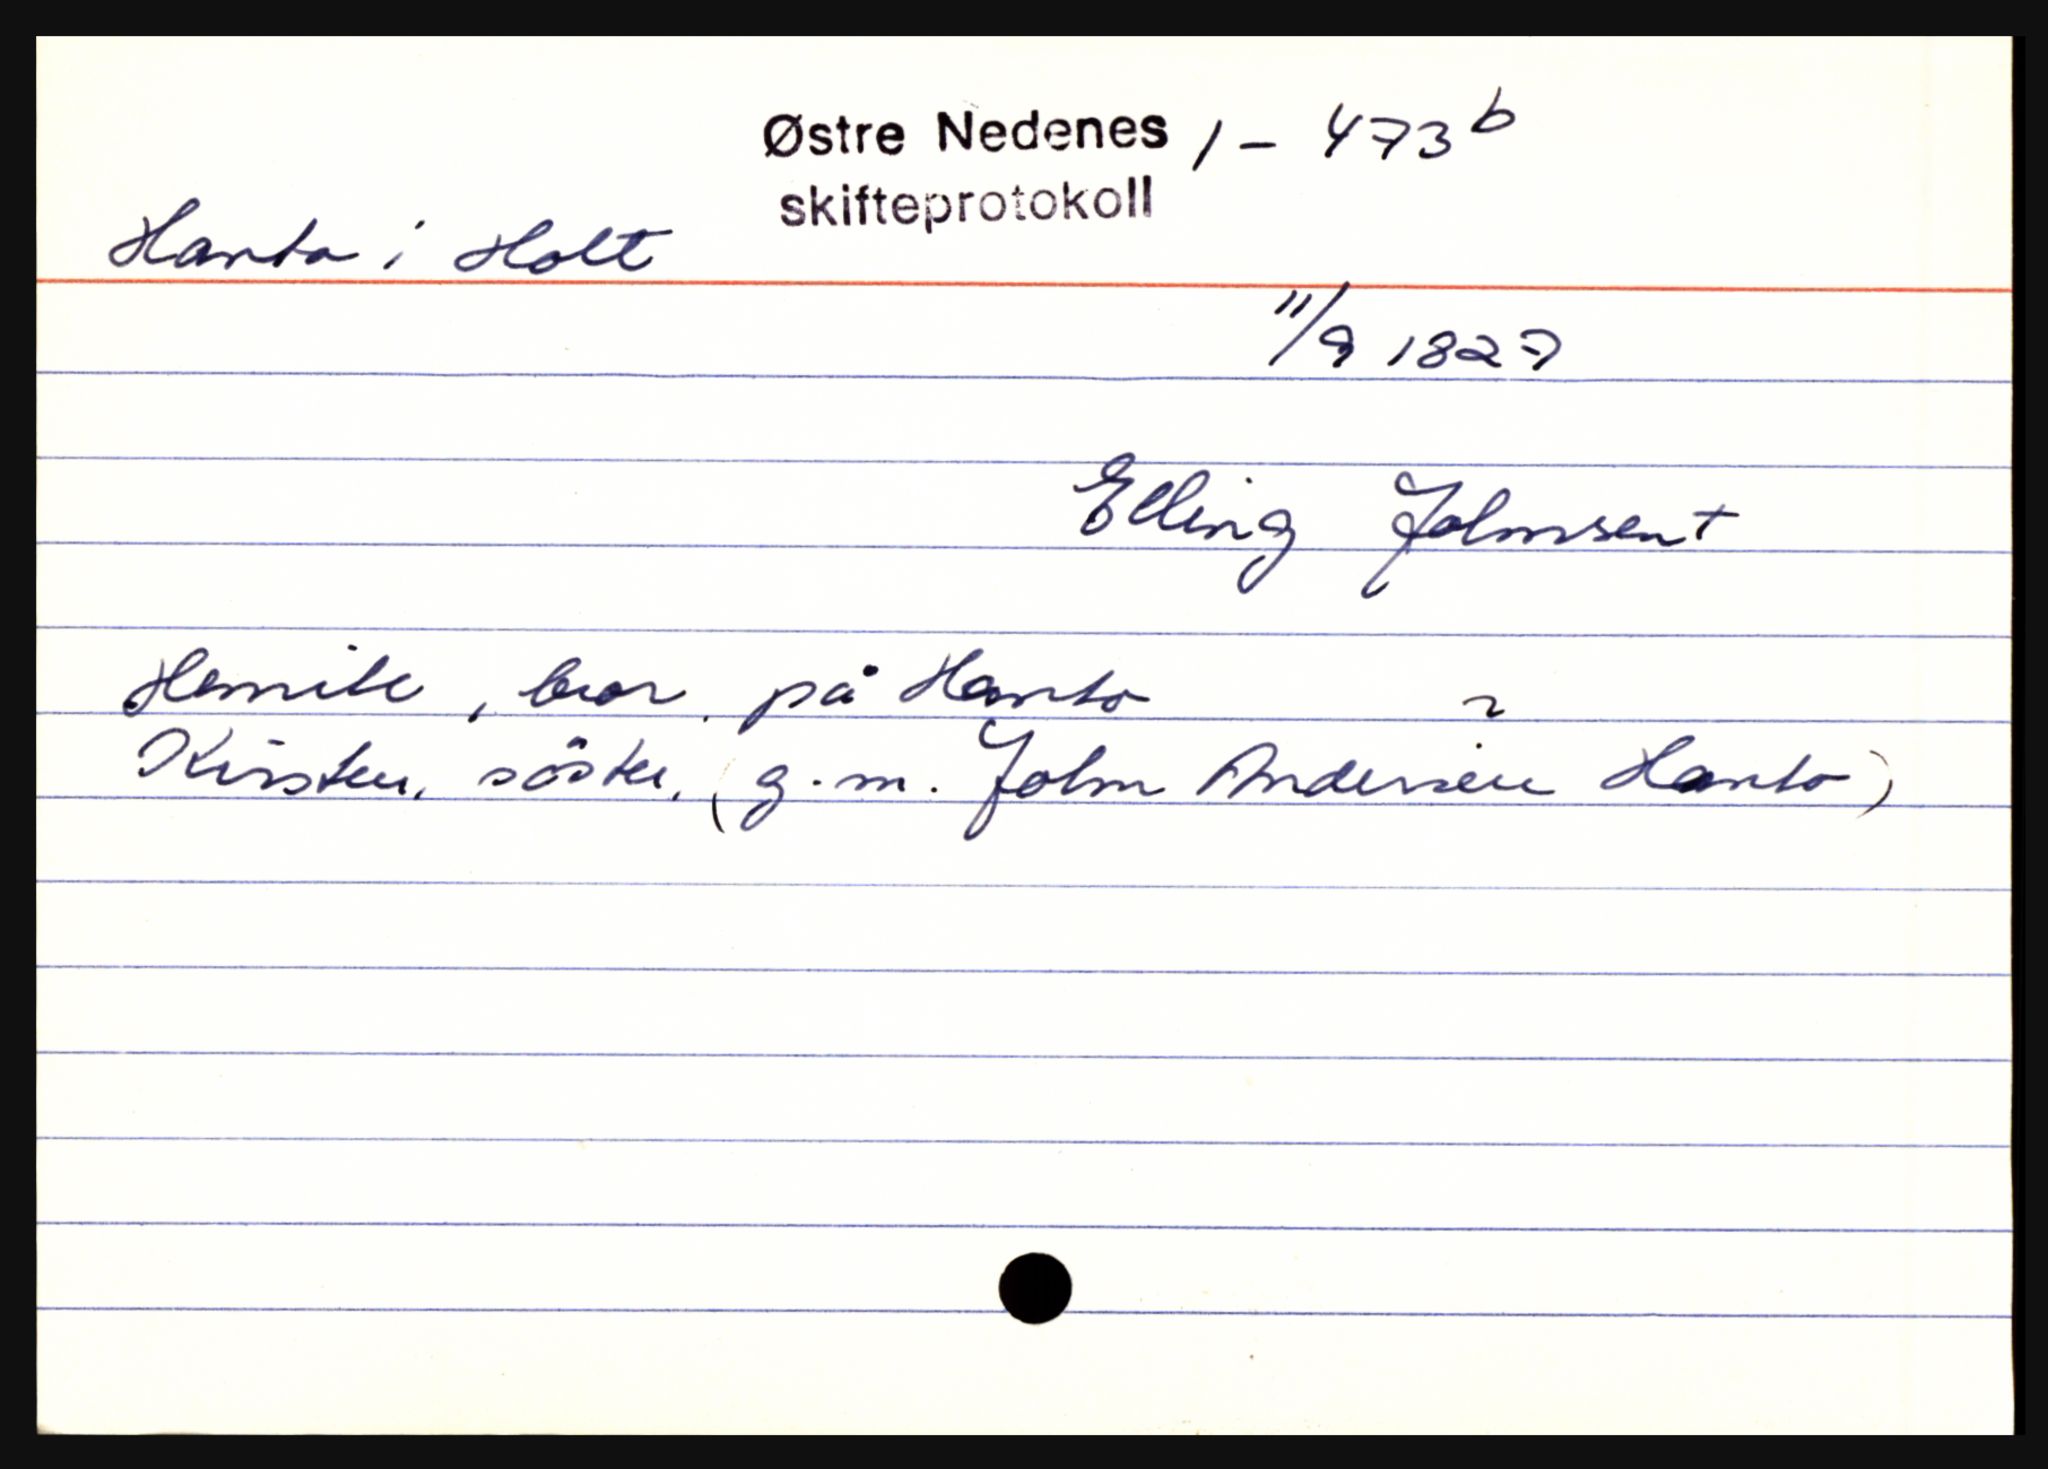 Østre Nedenes 1 - 473 b
skifteprotokoll
Hanto i Holt
11/9 1827
Elling Johnsen +
, bror, på Hanto
Kirsten, söster, (g.m. John Andersen Hanto)